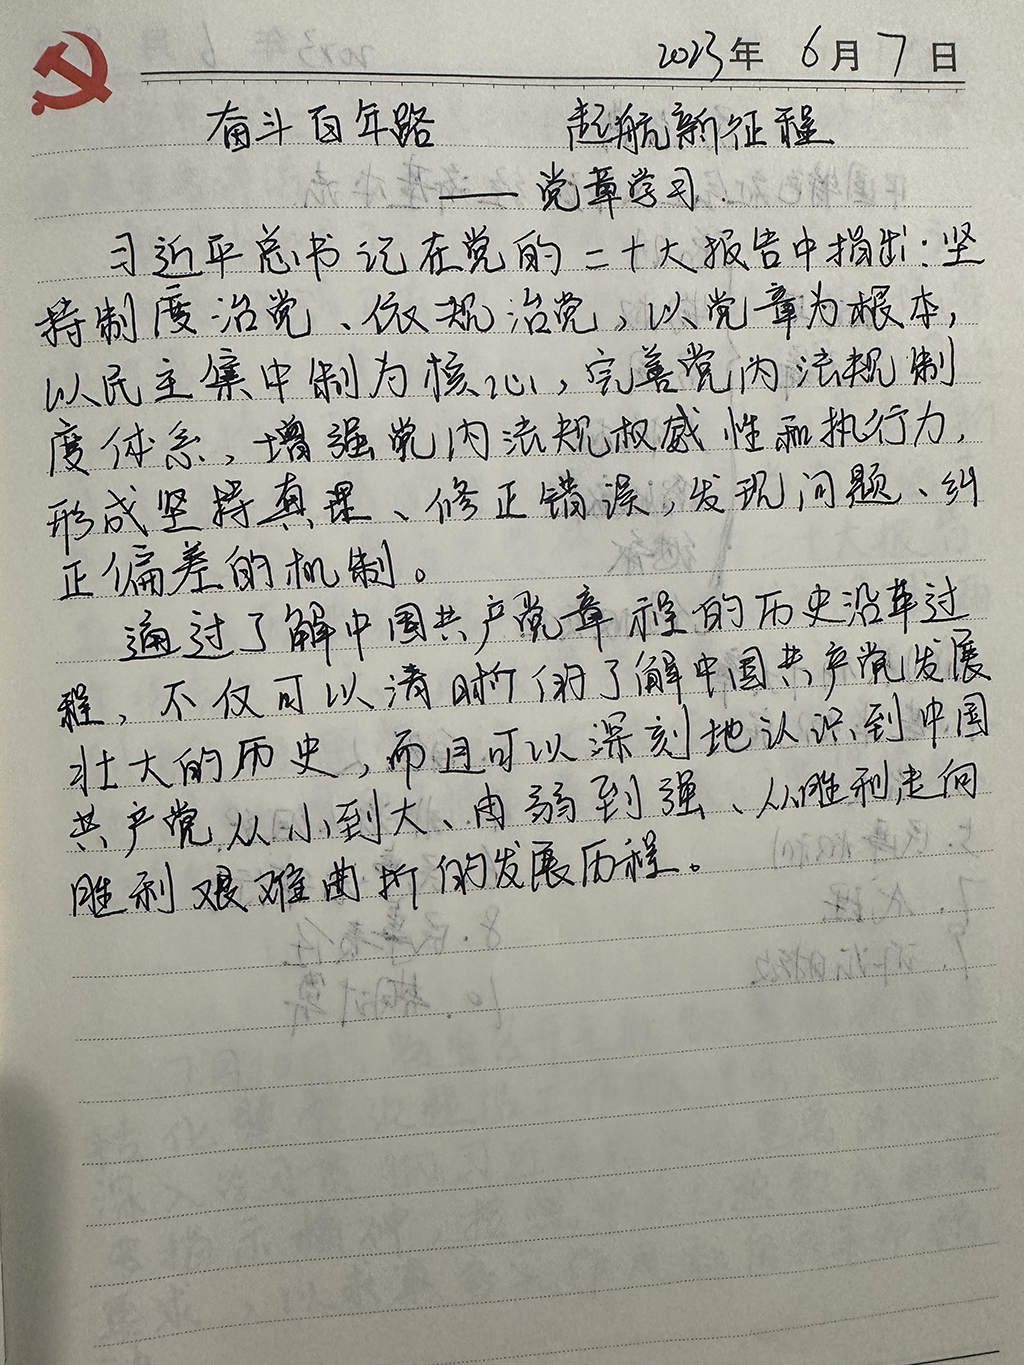 2023年 6月 7日
奋斗百年路 起航新征程
——党章学习
习近平总书记在党的二十大报告中指出：坚
持制度治党、依规治党，以党章为根本，
以民主集中制为核心，完善党内法规制
度体系，增强党内法规权威性和执行力，
形成坚持真理、修正错误，发现问题、纠
正偏差的机制。
通过了解中国共产党章程的历史沿革过
程，不仅可以清晰的了解中国共产党发展
壮大的历史，而且可以深刻地认识到中国
共产党从小到大、由弱到强、从胜利走向
胜利艰难曲折的发展历程。